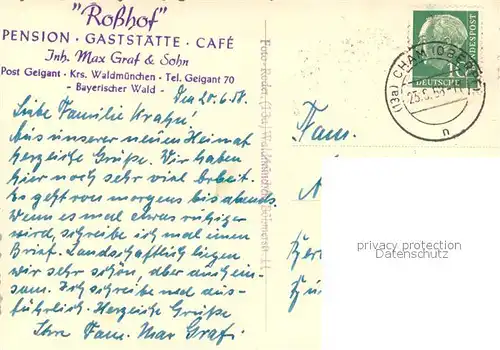 "Roßhof"
PENSION · GASTSTÄTTE · CAFÉ
Inh. Max Graf & Sohn
Post Geigant · Krs. Waldmünchen · Tel. Geigant 70
- Bayerischer Wald -
Den 25.6.58.
Liebe Familie Krahn!
Aus unserer neuen Heimat
herzliche Grüße. Wir haben
hier noch sehr viel Arbeit.
Es geht von morgens bis abends.
Wenn es mal etwas ruhiger
wird, schreibe ich mal einen
Brief. Landschaftlich liegen
wir sehr schön, aber auch ein-
sam. Ich schreibe noch aus-
führlich. Herzliche Grüße
Ihre Fam. Max Graf.
Fam.
(13a) CHAM (OBERPF)
n
10
DEUTSCHE
BUNDESPOST
privacy protection
www.delcampe.net